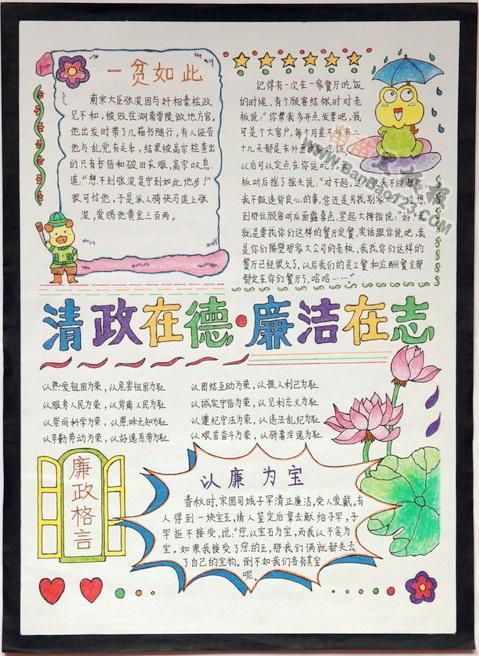 一贫如此
南宋大臣张浚因与奸相秦桧政
见不和，被贬往湖南零陵做地方官。
他出发时带了几箱书随行，有人诬告
他与乱党有关系，结果被高宗检查出
的只有书信和破旧衣服，高宗叹息
道："想不到张浚贫守到如此地步！"
很可怜他，于是派人骑快马追上张
浚，赏赐他黄金三百两。
记得有一次在一家餐厅吃饭
的时候，有个顾客结帐时对老
板说："你帮我多开点发票吧，我
可是个大客户，每个月
十几天都是在外
以后可以定点在你这
板听后摇了摇头说："对不起，
我不做违背良心的事，你还是另找别家
到那位顾客听后面露喜色，竖起大拇指说："好！我
就是要找你们这样的餐厅定餐，实话跟你说吧，我
是你们隔壁那家大公司的老板，我找你们这样的
餐厅已经很久了，以后我们的员工餐和应酬餐全部
都定在你们餐厅了，哈哈……"
清政在德·廉洁在志
以热爱祖国为荣，以危害祖国为耻
以服务人民为荣，以背离人民为耻
以崇尚科学为荣，以愚昧无知为耻
以辛勤劳动为荣，以好逸恶劳为耻
以团结互助为荣，以损人利己为耻
以诚实守信为荣，以见利忘义为耻
以遵纪守法为荣，以违法乱纪为耻
以艰苦奋斗为荣，以骄奢淫逸为耻
廉政格言
以廉为宝
春秋时，宋国司城子罕清正廉洁，受人爱戴，有
人得到一块宝玉，请人鉴定后拿去献给子罕，子
罕拒不接受，说："您以宝石为宝，而我以不贪为
宝。如果我接受了您的玉，那我们俩就都失去
了自己的宝物。倒不如我们各有其宝
呢。"